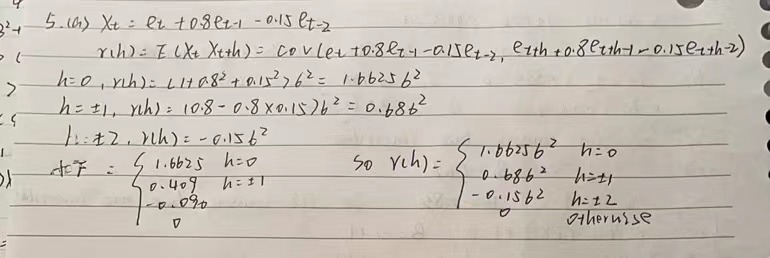 5.(a) Xt = et + 0.8et-1 - 0.15et-2
r(h) = E(Xt Xt+h) = cov(et + 0.8et-1 - 0.15et-2, et+h + 0.8et+h-1 - 0.15et+h-2)
h=0, r(h) = (1 + 0.8² + 0.15²)6² = 1.66256²
h=±1, r(h) = (0.8 - 0.8×0.15)6² = 0.686²
h=±2, r(h) = -0.156²
= { 1.6625 h=0
0.409 h=±1
-0.090
0
so r(h) = { 1.66256² h=0
0.686² h=±1
-0.156² h=±2
0 otherwise